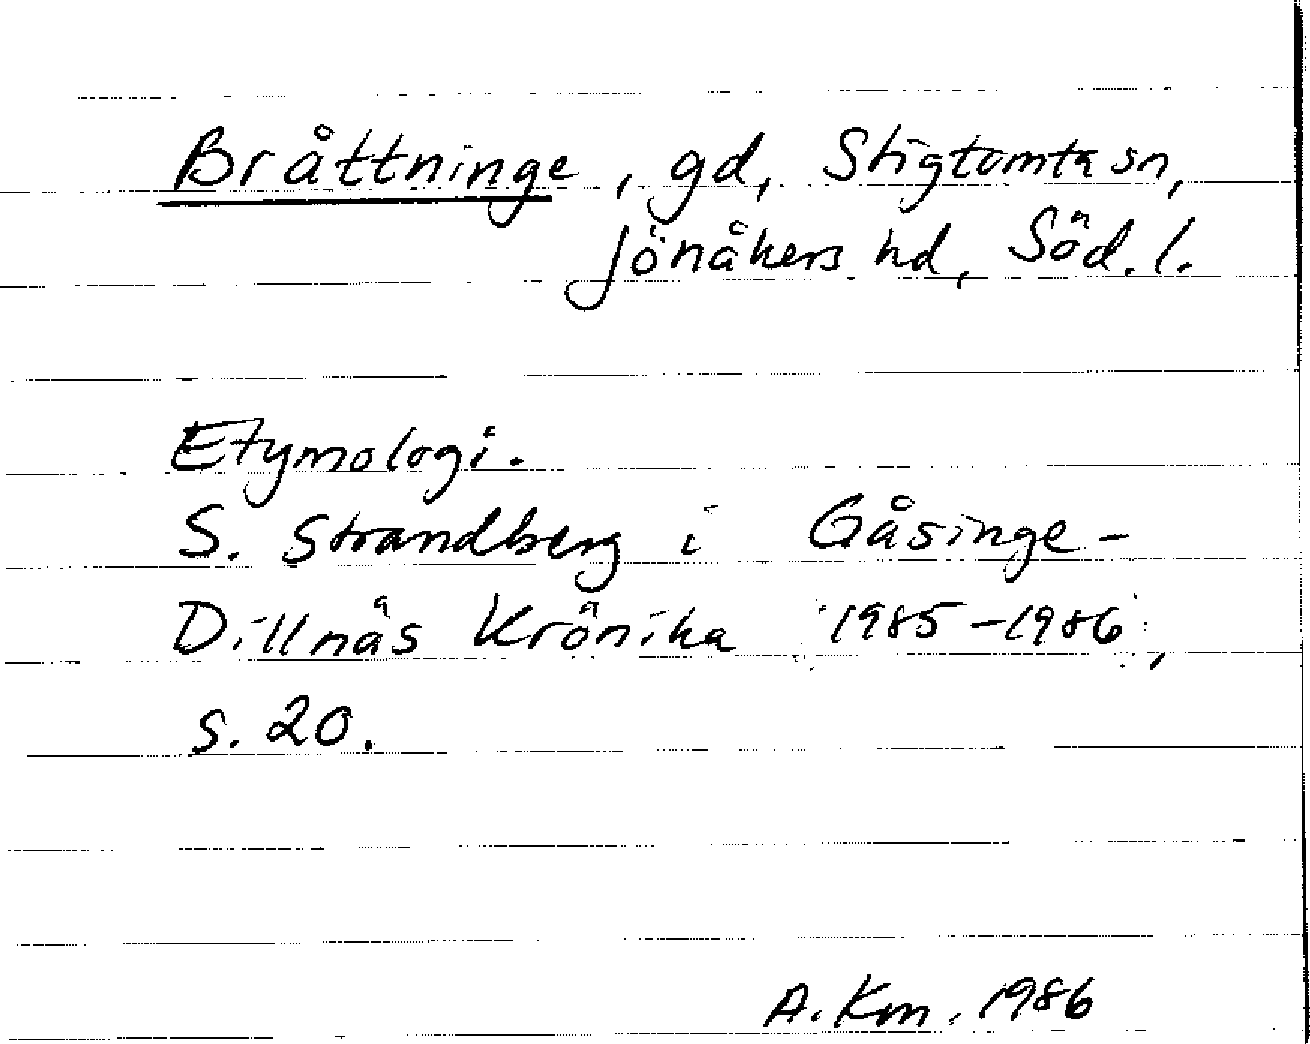 Bråttninge, gd, Stigtomta sn,
Jönåkers hd, Söd. l.
Etymologi.
S. Strandberg i Gåsinge-
Dillnäs Krönika 1985-1986,
s. 20.
A. Km. 1986